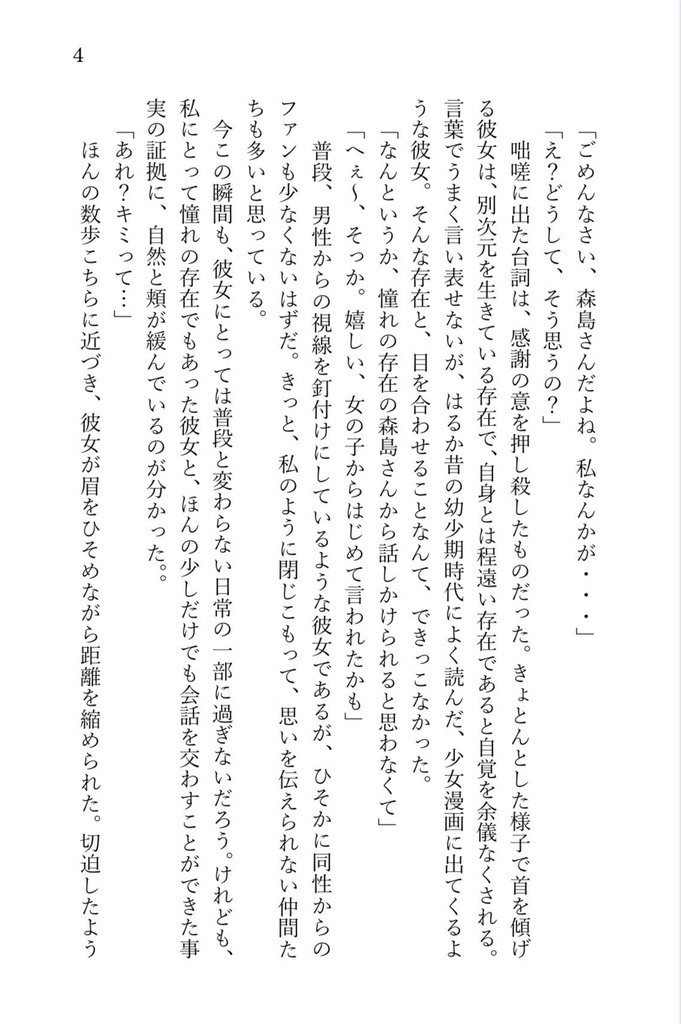 4
「ごめんなさい、森島さんだよね。私なんかが・・・」
「え？どうして、そう思うの？」
咄嗟に出た台詞は、感謝の意を押し殺したものだった。きょとんとした様子で首を傾げ
る彼女は、別次元を生きている存在で、自身とは程遠い存在であると自覚を余儀なくされる。
言葉でうまく言い表せないが、はるか昔の幼少期時代によく読んだ、少女漫画に出てくるよ
うな彼女。そんな存在と、目を合わせることなんて、できっこなかった。
「なんというか、憧れの存在の森島さんから話しかけられると思わなくて」
「へぇ～、そっか。嬉しい、女の子からはじめて言われたかも」
普段、男性からの視線を釘付けにしているような彼女であるが、ひそかに同性からの
ファンも少なくないはずだ。きっと、私のように閉じこもって、思いを伝えられない仲間た
ちも多いと思っている。
今この瞬間も、彼女にとっては普段と変わらない日常の一部に過ぎないだろう。けれども、
私にとって憧れの存在でもあった彼女と、ほんの少しだけでも会話を交わすことができた事
実の証拠に、自然と頬が緩んでいるのが分かった。。
「あれ？キミって…」
ほんの数歩こちらに近づき、彼女が眉をひそめながら距離を縮められた。切迫したよう